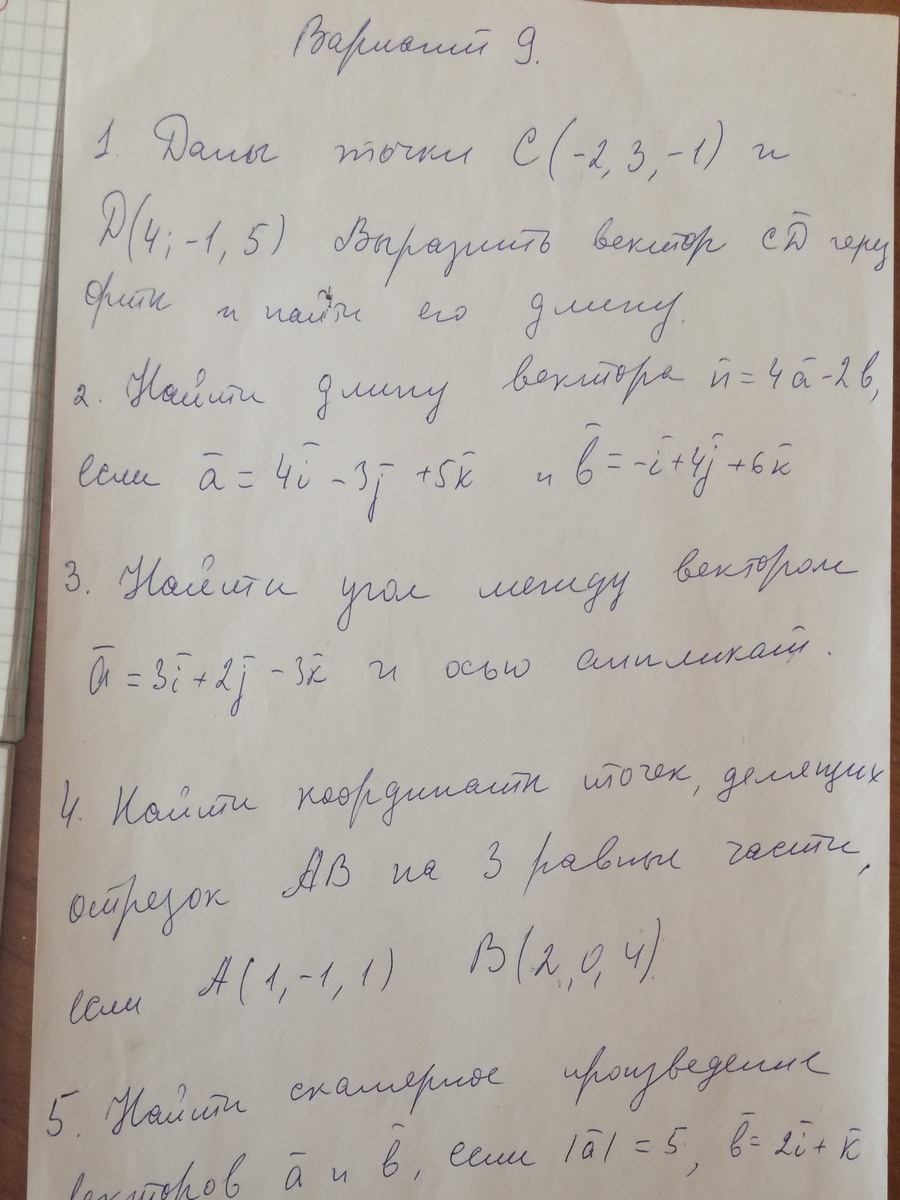 Вариант 9.
1. Даны точки C(-2, 3, -1) и
D(4; -1, 5) Выразить вектор c̄D̄ через
орты и найти его длину.
2. Найти длину вектора n̄ = 4ā - 2b̄,
если ā = 4ī - 3j̄ + 5k̄ и b̄ = -ī + 4j̄ + 6k̄
3. Найти угол между вектором
ā = 3ī + 2j̄ - 3k̄ и осью аппликат.
4. Найти координаты точек, делящих
отрезок AB на 3 равные части,
если A(1, -1, 1) B(2, 0, 4)
5. Найти скалярное произведение
векторов ā и b̄, если |ā| = 5, b̄ = 2ī + k̄